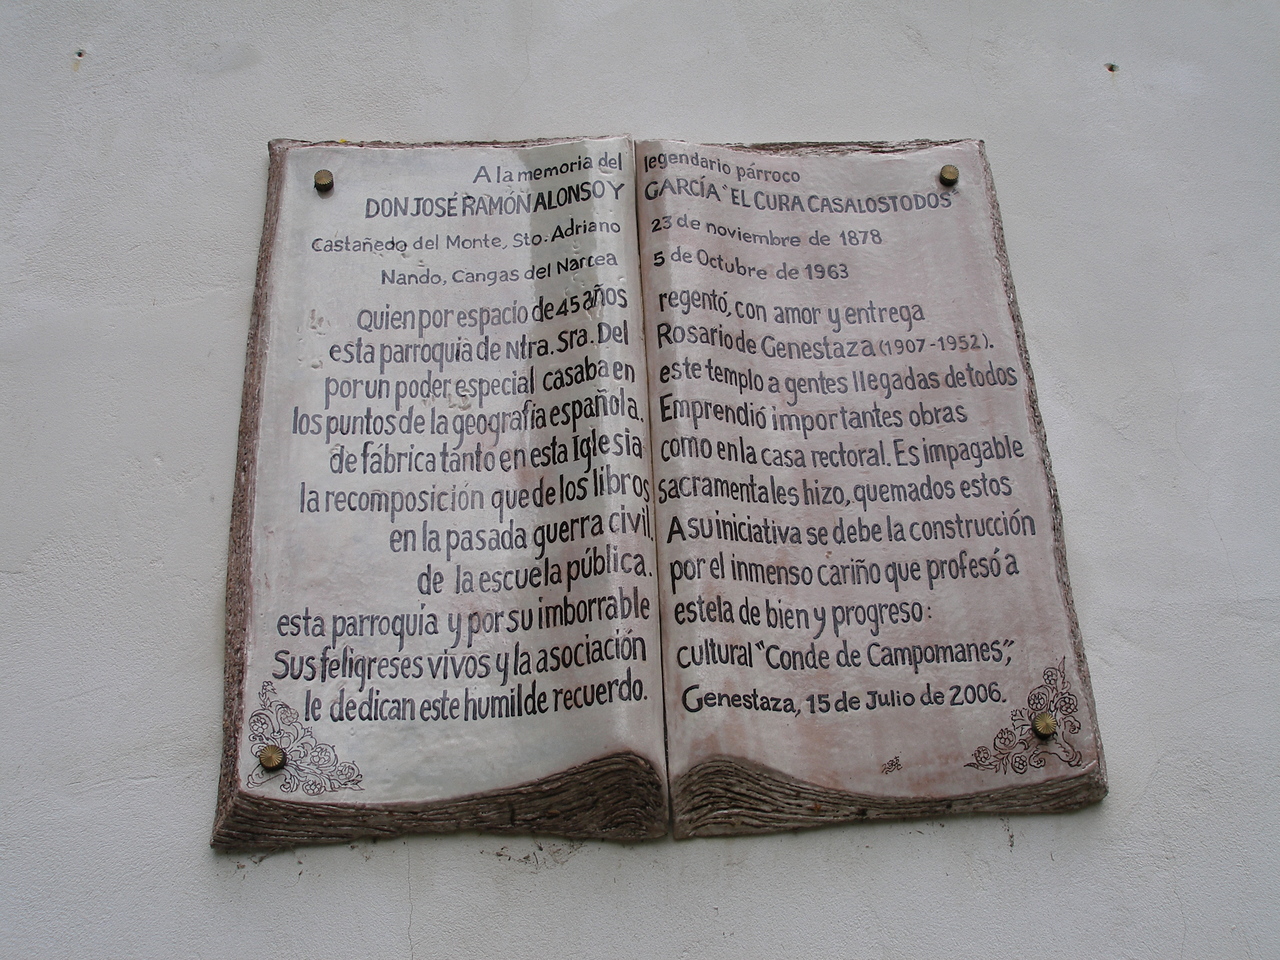 A la memoria del legendario párroco
DON JOSÉ RAMÓN ALONSO Y GARCÍA "EL CURA CASALOSTODOS"
Castañedo del Monte, Sto. Adriano 23 de noviembre de 1878
Nando, Cangas del Narcea 5 de Octubre de 1963
Quien por espacio de 45 años regentó, con amor y entrega
esta parroquia de Ntra. Sra. Del Rosario de Genestaza (1907-1952).
por un poder especial casaba en este templo a gentes llegadas de todos
los puntos de la geografía española. Emprendió importantes obras
de fábrica tanto en esta Iglesia como en la casa rectoral. Es impagable
la recomposición que de los libros sacramentales hizo, quemados estos
en la pasada guerra civil. A su iniciativa se debe la construcción
de la escuela pública. por el inmenso cariño que profesó a
esta parroquia y por su imborrable estela de bien y progreso:
Sus feligreses vivos y la asociación cultural "Conde de Campomanes",
le dedican este humilde recuerdo. Genestaza, 15 de Julio de 2006.